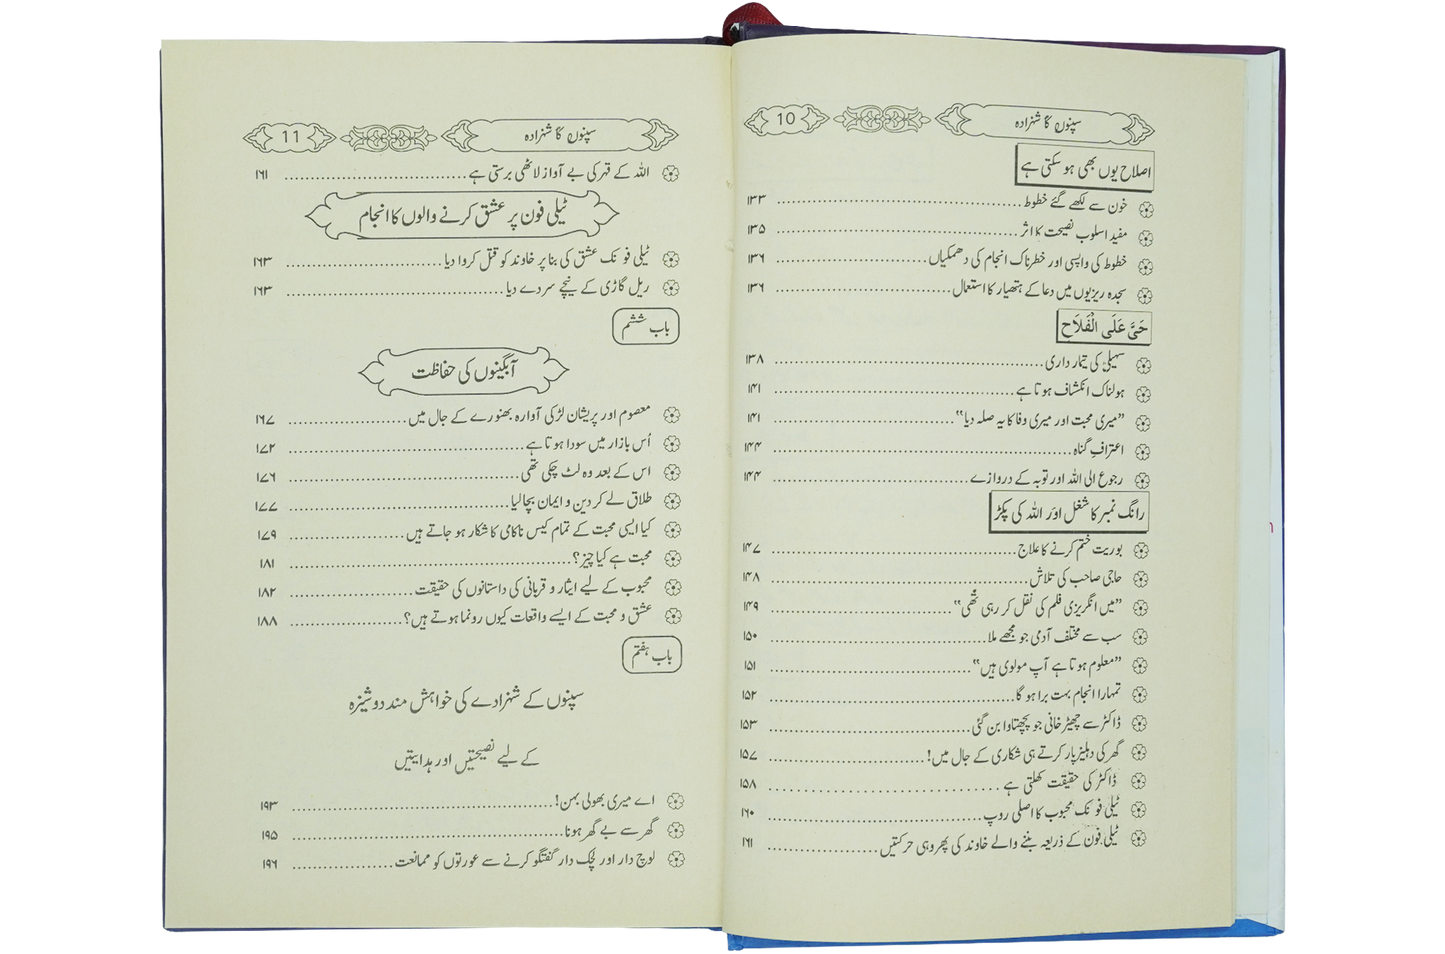 سپنوں کا شہزادہ 10
اصلاح یوں بھی ہو سکتی ہے
خون سے لکھے گئے خطوط ۱۳۳
مفید اسلوبِ نصیحت کا اثر ۱۳۵
خطوط کی واپسی اور خطرناک انجام کی دھمکیاں ۱۳۶
سجدہ ریزیوں میں دعا کے ہتھیار کا استعمال ۱۳۶
حَیَّ عَلَی الْفَلَاح
سہیلی کی تیمارداری ۱۳۸
ہولناک انکشاف ہوتا ہے ۱۴۱
”میری محبت اور میری وفا کا یہ صلہ دیا“ ۱۴۱
اعترافِ گناہ ۱۴۴
رجوع الی اللہ اور توبہ کے دروازے ۱۴۴
رانگ نمبر کا شغل اور اللہ کی پکڑ
بوریت ختم کرنے کا علاج ۱۴۷
حاجی صاحب کی تلاش ۱۴۸
”میں انگریزی فلم کی نقل کر رہی تھی“ ۱۴۹
سب سے مختلف آدمی جو مجھے ملا ۱۵۰
”معلوم ہوتا ہے آپ مولوی ہیں“ ۱۵۱
تمہارا انجام بہت برا ہو گا ۱۵۲
ڈاکٹر سے چھیڑ خانی جو پچھتاوا بن گئی ۱۵۳
گھر کی دہلیز پار کرتے ہی شکاری کے جال میں! ۱۵۷
ڈاکٹر کی حقیقت کھلتی ہے ۱۵۸
ٹیلی فونک محبوب کا اصلی روپ ۱۶۰
ٹیلی فون کے ذریعہ بننے والے خاوند کی پھر وہی حرکتیں ۱۶۱
سپنوں کا شہزادہ 11
اللہ کے قہر کی بے آواز لاٹھی برستی ہے ۱۶۱
ٹیلی فون پر عشق کرنے والوں کا انجام
ٹیلی فونک عشق کی بنا پر خاوند کو قتل کروا دیا ۱۶۳
ریل گاڑی کے نیچے سر دے دیا ۱۶۳
باب ششم
آبگینوں کی حفاظت
معصوم اور پریشان لڑکی آوارہ بھنورے کے جال میں ۱۶۷
اُس بازار میں سودا ہوتا ہے ۱۷۲
اس کے بعد وہ لٹ چکی تھی ۱۷۶
طلاق لے کر دین و ایمان بچا لیا ۱۷۷
کیا ایسی محبت کے تمام کیس ناکامی کا شکار ہو جاتے ہیں ۱۷۹
محبت ہے کیا چیز؟ ۱۸۱
محبوب کے لیے ایثار و قربانی کی داستانوں کی حقیقت ۱۸۲
عشق و محبت کے ایسے واقعات کیوں رونما ہوتے ہیں؟ ۱۸۸
باب ہفتم
سپنوں کے شہزادے کی خواہش مند دوشیزہ
کے لیے نصیحتیں اور ہدایتیں
اے میری بھولی بہن! ۱۹۳
گھر سے بے گھر ہونا ۱۹۵
لوچ دار اور لچک دار گفتگو کرنے سے عورتوں کو ممانعت ۱۹۶